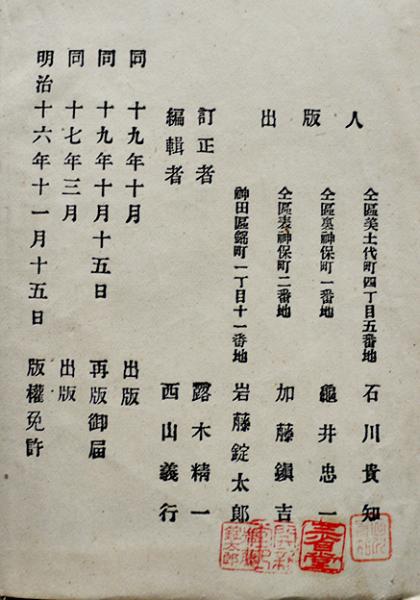 明治十六年十一月十五日 版權免許
同 十七年三月 出版
同 十九年十月十五日 再版御届
同 十九年十月 出版
編輯者 西山義行
訂正者 露木精一
出版人
神田區錦町一丁目十一番地 岩藤錠太郎
仝區表神保町二番地 加藤鎭吉
仝區裏神保町一番地 龜井忠一
仝區美土代町四丁目五番地 石川貴知
三省堂